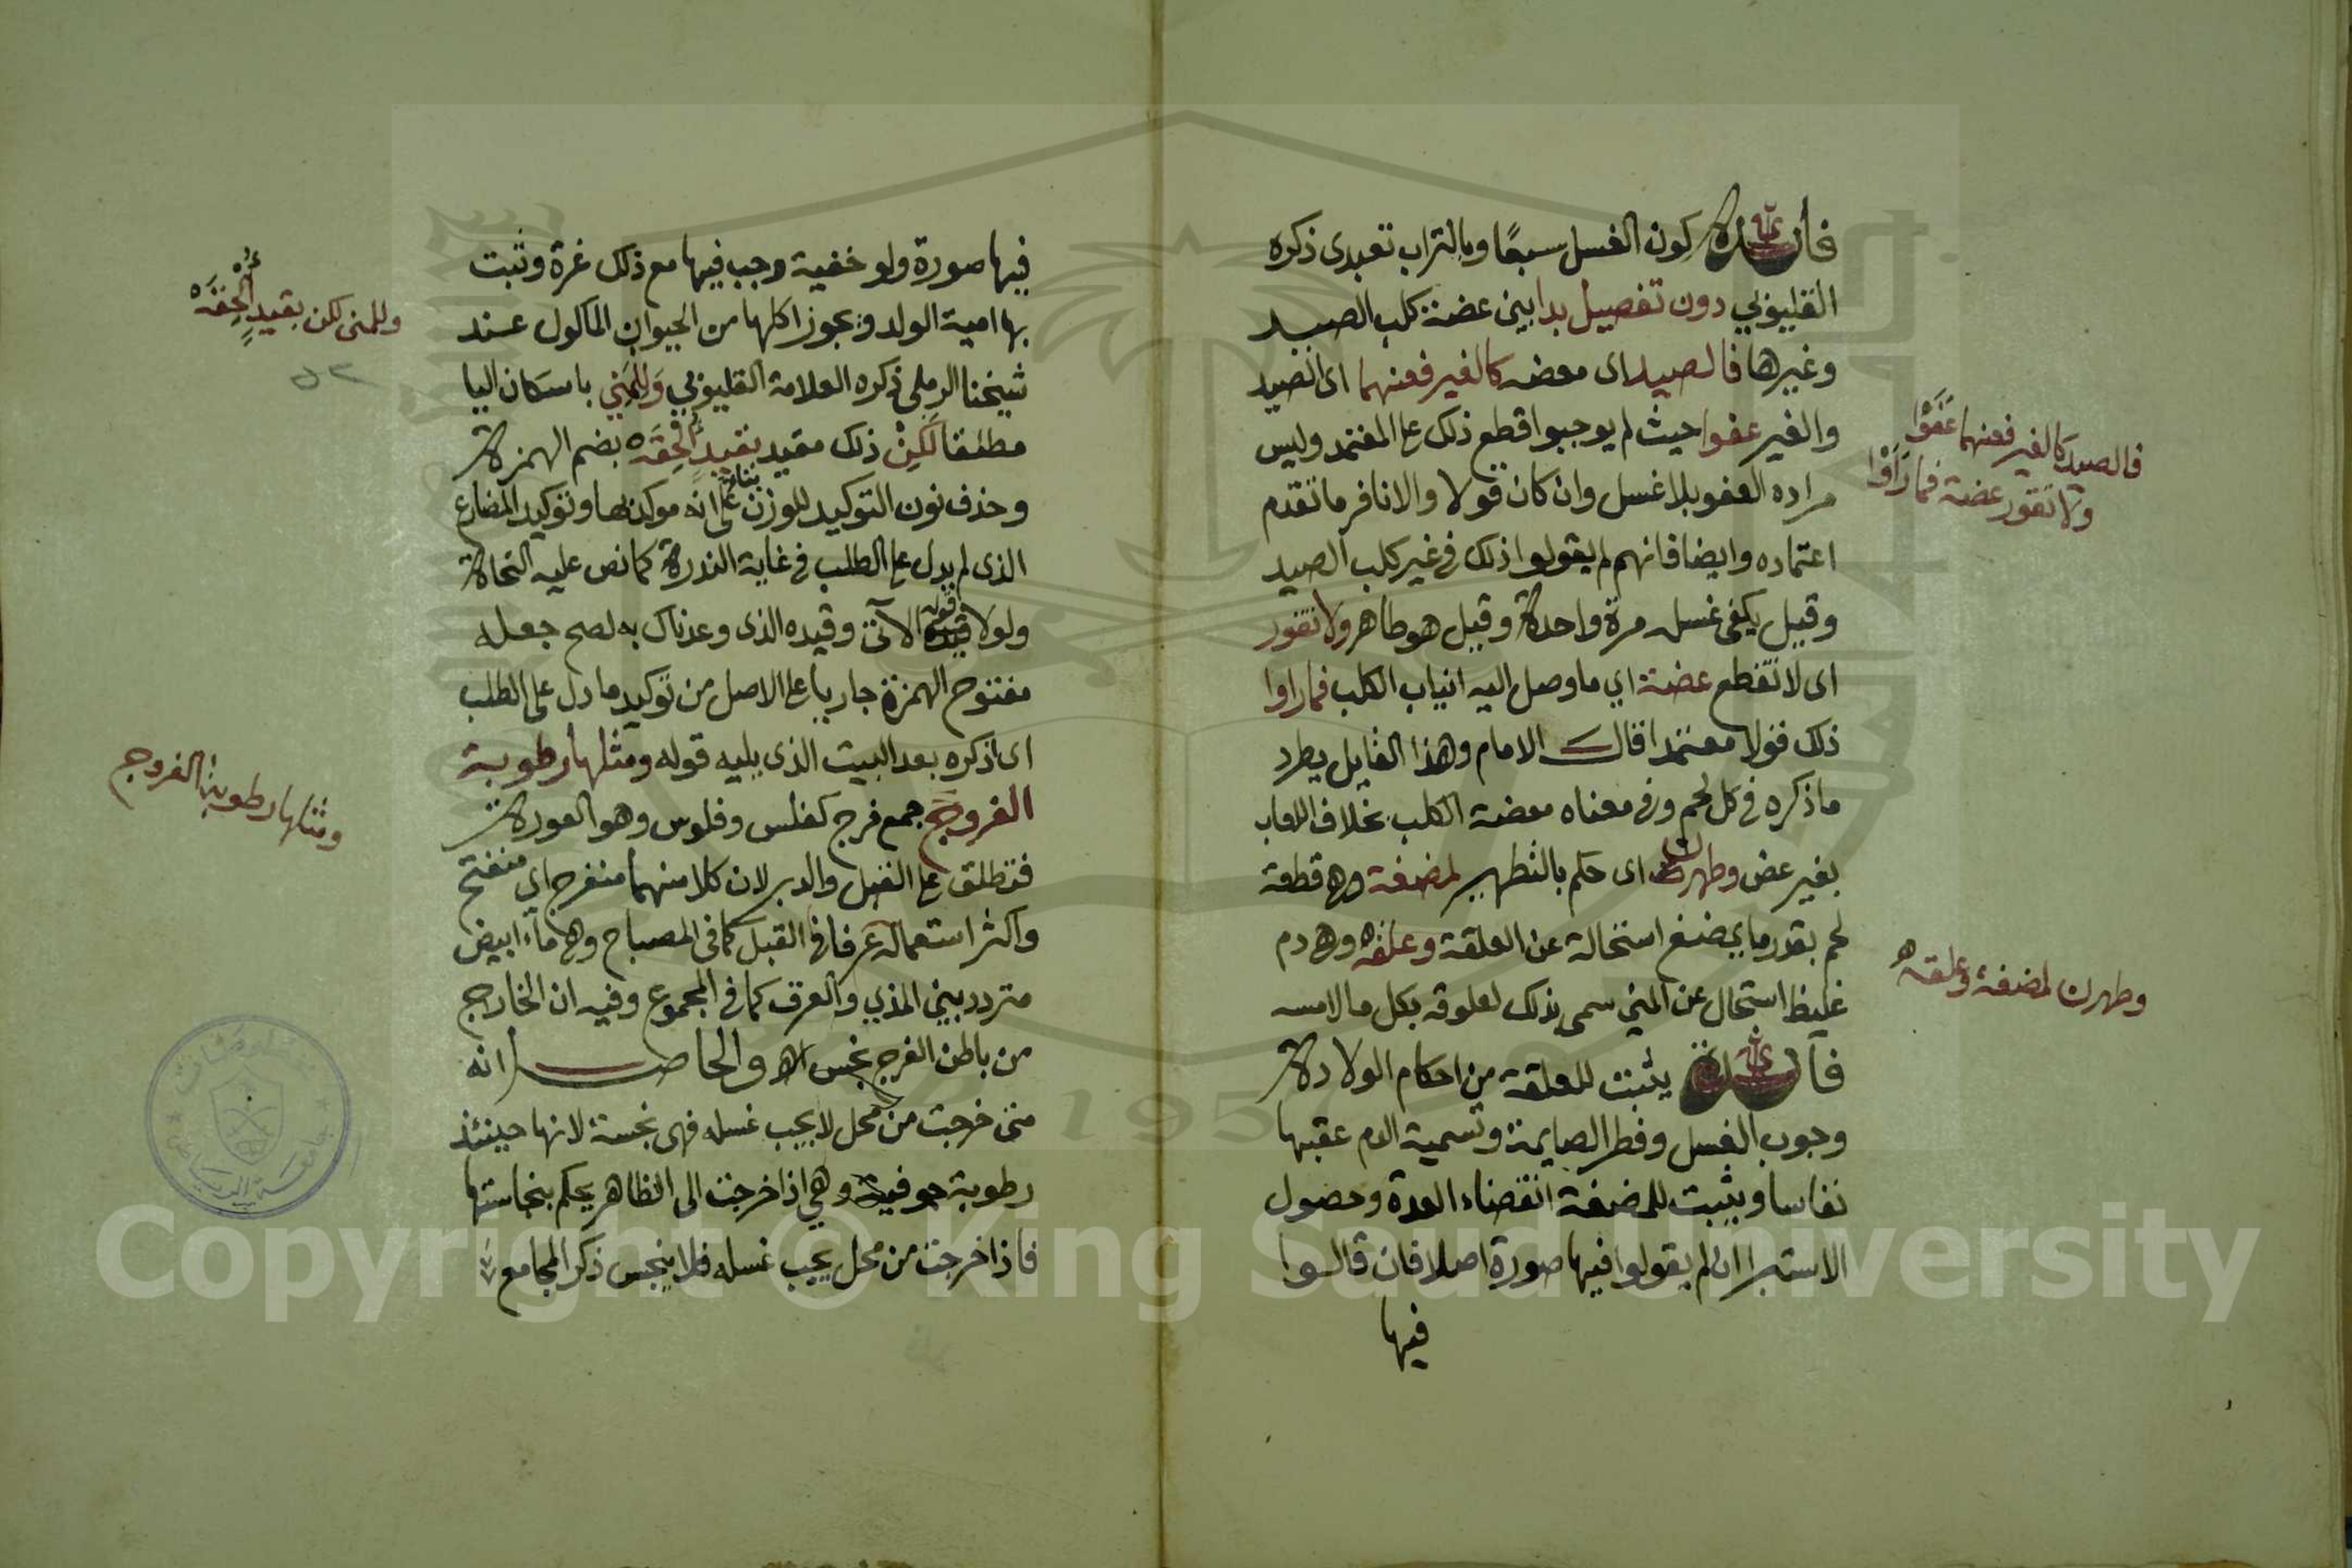 فائدة كون الغسل سبعًا وبالتراب تعبدى ذكره
القليوبي دون تفصيل بدا بين عضة كلب الصيد
وغيرها فالصيد اى معضه كالغير فعنهما اى الصيد
والغير عفوا حيث لم يوجبوا قطع ذلك على المعتمد وليس
مراده العفو بلا غسل وان كان قولا والا نافر ما تقدم
اعتماده وايضا فانهم لم يقولوا ذلك فى غير كلب الصيد
وقيل يكفى غسله مرة واحدة وقيل هو طاهر ولا تقور
اى لا تقطع عضة اي ما وصل اليه انياب الكلب فما راوا
ذلك قولا معتمدا قال الامام وهذا القايل يطرد
ما ذكره فى كل لحم وفى معناه معضة الكلب بخلاف اللعاب
بغير عض وطهرن اى حكم بالتطهير لمضغة وهى قطعة
لحم بقدر ما يمضغ استحالة عن العلقة وعلقه وهى دم
غليظ استحال عن المني سمى بذلك لعلوقه بكل ما لامسه
فائدة يثبت للعلقة من احكام الولادة
وجوب الغسل وفطر الصايمة وتسمية الدم عقبها
نفاسا ويثبت للمضغة انقضاء العدة وحصول
الاستبرا ان لم يقولوا فيها صورة اصلا فان قالوا
فيها
فالصيد كالغير فعنهما عَفَوْا
ولا تقور عضة فما رَاَوْا
وطهرن لمضغة وعلقه
فيها صورة ولو خفية وجب فيها مع ذلك غرة وثبت
بها امية الولد ويجوز اكلها من الحيوان المأكول عند
شيخنا الرملى ذكره العلامة القليوبي وَللمَني باسكان اليا
مطلقا لَكِنْ ذلك مقيد بقيدٍ اُلحِقَه بضم الهمزة
وحذف نون التوكيد للوزن بناء على انه موكد بها وتوكيد المضارع
الذى لم يدل على الطلب فى غاية الندرة كما نص عليه النحاة
ولولا قوله الآتى وقيده الذى وعدناك به لصح جعله
مفتوح الهمزة جاريا على الاصل من توكيد ما دل على الطلب
اى اذكره بعد البيت الذى يليه قوله ومثلها رطوبة
الفروج جمع فرج كفلس وفلوس وهو العورة
فتطلق على القبل والدبر لان كلا منهما منفرج اي منفتح
واكثر استعماله عرفا فى القبل كما فى المصباح وهى ماء ابيض
متردد بين المذي والعرق كما فى المجموع وفيه ان الخارج
من باطن الفرج نجس اهـ والحاصل انه
متى خرجت من محل لا يجب غسله فهى نجسة لانها حينئذ
رطوبة جوفية وهي اذا خرجت الى الظاهر يحكم بنجاستها
فاذا خرجت من محل يجب غسله فلا ينجس ذكر المجامع
وللمنى لكن بقيدٍ اُلحِقَه
ومثلها رطوبة الفروج
Copyright © King Saud University
1957